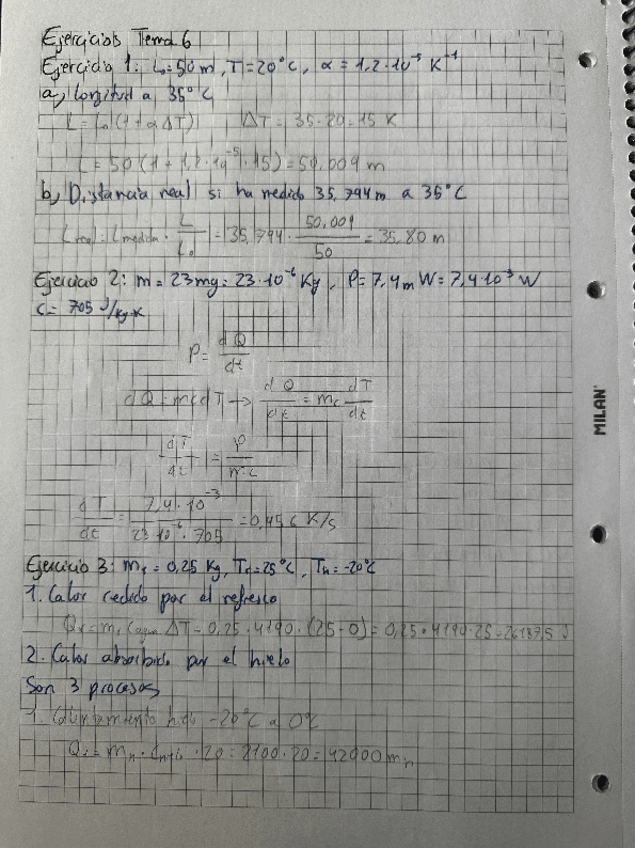 Ejercicios Tema 6
Ejercicio 1: L₀=50 m, T=20°C, α=1,2·10⁻⁵ K⁻¹
a) Longitud a 35°C
L=L₀(1+αΔT) ΔT=35-20=15 K
L=50(1+1,2·10⁻⁵·15)=50,009 m
b) Distancia real si ha medido 35,794 m a 35°C
L real = L medida · L/L₀ = 35,794 · 50,009/50 = 35,80 m
Ejercicio 2: m=23mg=23·10⁻⁶ Kg, P=7,4 mW=7,4·10⁻³ W
c=705 J/kg·K
P=dQ/dt
dQ=mcdT→ dQ/dt=mc dT/dt
dT/dt=P/m·c
dT/dt=7,4·10⁻³/23·10⁻⁶·705=0,456 K/s
Ejercicio 3: m_r=0,25 Kg, T_r=25°C, T_h=-20°C
1. Calor cedido por el refresco
Q_r=m_r c agua ΔT=0,25·4190·(25-0)=0,25·4190·25=26187,5 J
2. Calor absorbido por el hielo
Son 3 procesos
1. Calentamiento hielo -20°C a 0°C
·20=2100·20=42000 m_h
MILAN